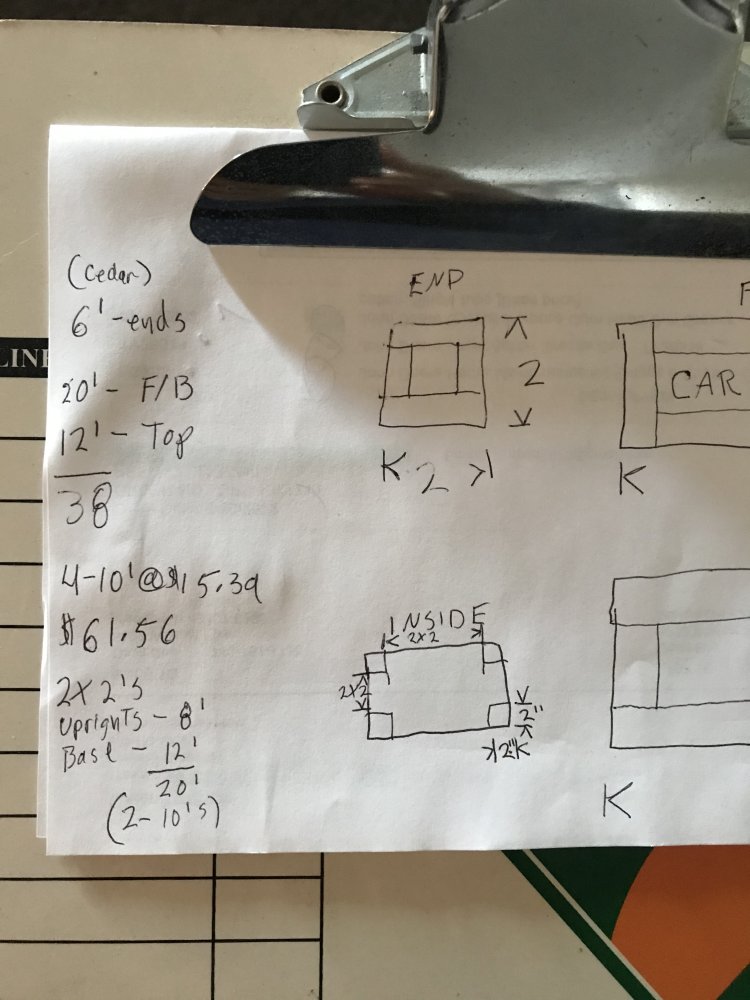 LINE
(Cedar)
6'-ends
20' - F/B
12' - Top
38
4-10'@$15.39
$61.56
2x2's
Uprights - 8'
Base - 12'
20'
(2-10's)
END
2
K 2 >|
F
CAR
K
INSIDE
2x2
2x2
2"
2"
K